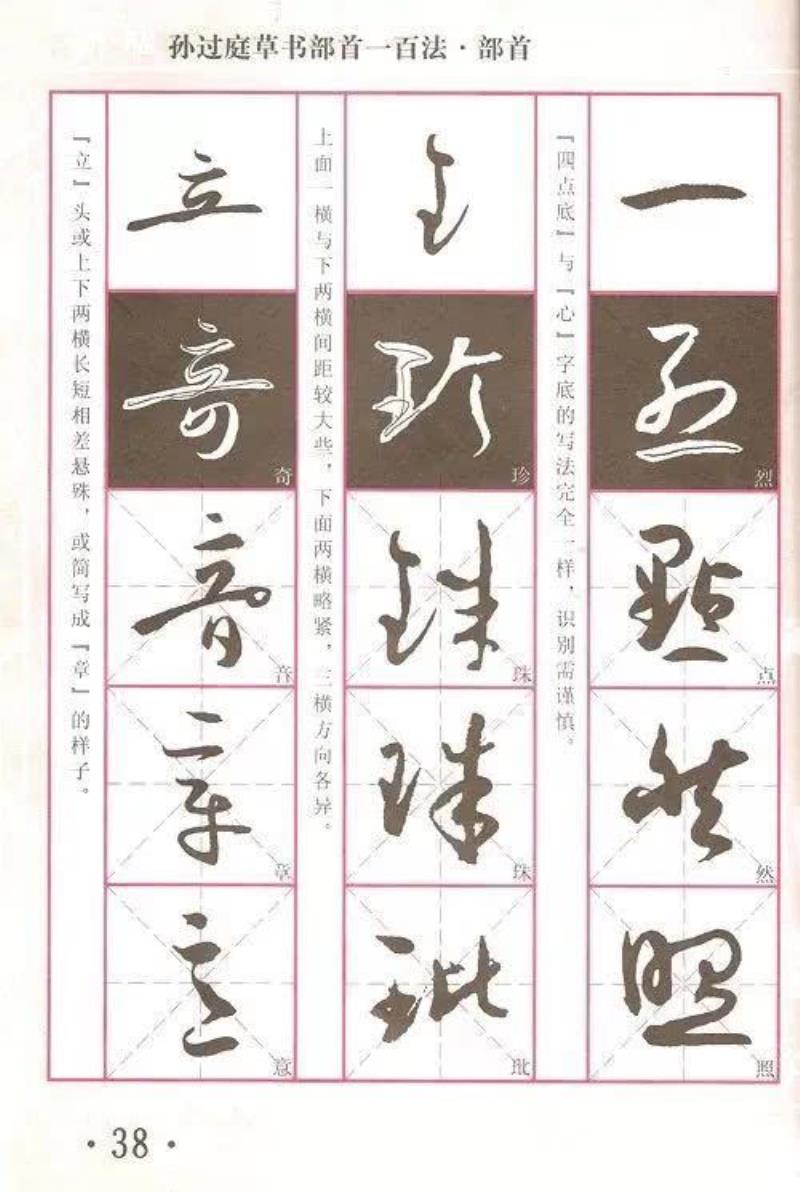 孙过庭草书部首一百法·部首
『四点底』与『心』字底的写法完全一样，识别需谨慎。
烈
点
然
照
上面一横与下两横间距较大些，下面两横略紧，三横方向各异。
珍
珠
珠
玭
『立』头或上下两横长短相差悬殊，或简写成『章』的样子。
立
奇
音
章
意
·38·